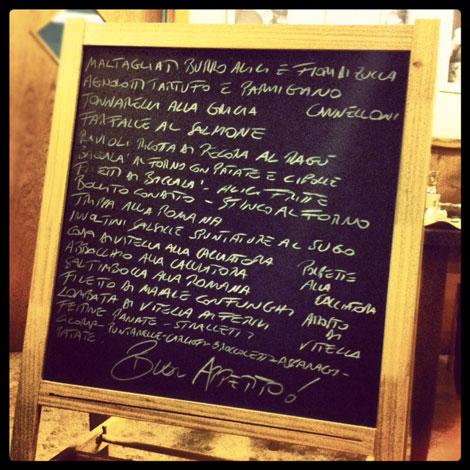 MALTAGLIATI BURRO ALICI E FIORI DI ZUCCA
AGNOLOTTI TARTUFO E PARMIGIANO
TONNARELLI ALLA GRICIA CANNELLONI
FARFALLE AL SALMONE
RAVIOLI RICOTA DI PECORA AL RAGÙ
BACCALA' AL FORNO CON PATATE E CIPOLLE
FILETTI DI BACCALA' - ALICI FRITTE
BOLLITO - STINCO AL FORNO
TRIPPA ALLA ROMANA
INVOLTINI SALSICCE SPUNTATURE AL SUGO
CODA DI VITELLA ALLA CACCIATORA POLPETTE
ABBACCHIO ALLA CACCIATORA ALLA
SALTIMBOCCA ALLA ROMANA CACCIATORA
FILETTO DI MAIALE CON FUNGHI ARROSTO
LOMBATA DI VITELLA AI FERRI DI
FETTINE PANATE - STRACCETTI VITELLA
CICORIA - PUNTARELLE - CARCIOFI - BROCCOLETTI - ASPARAGI -
PATATE
BUON APPETITO!